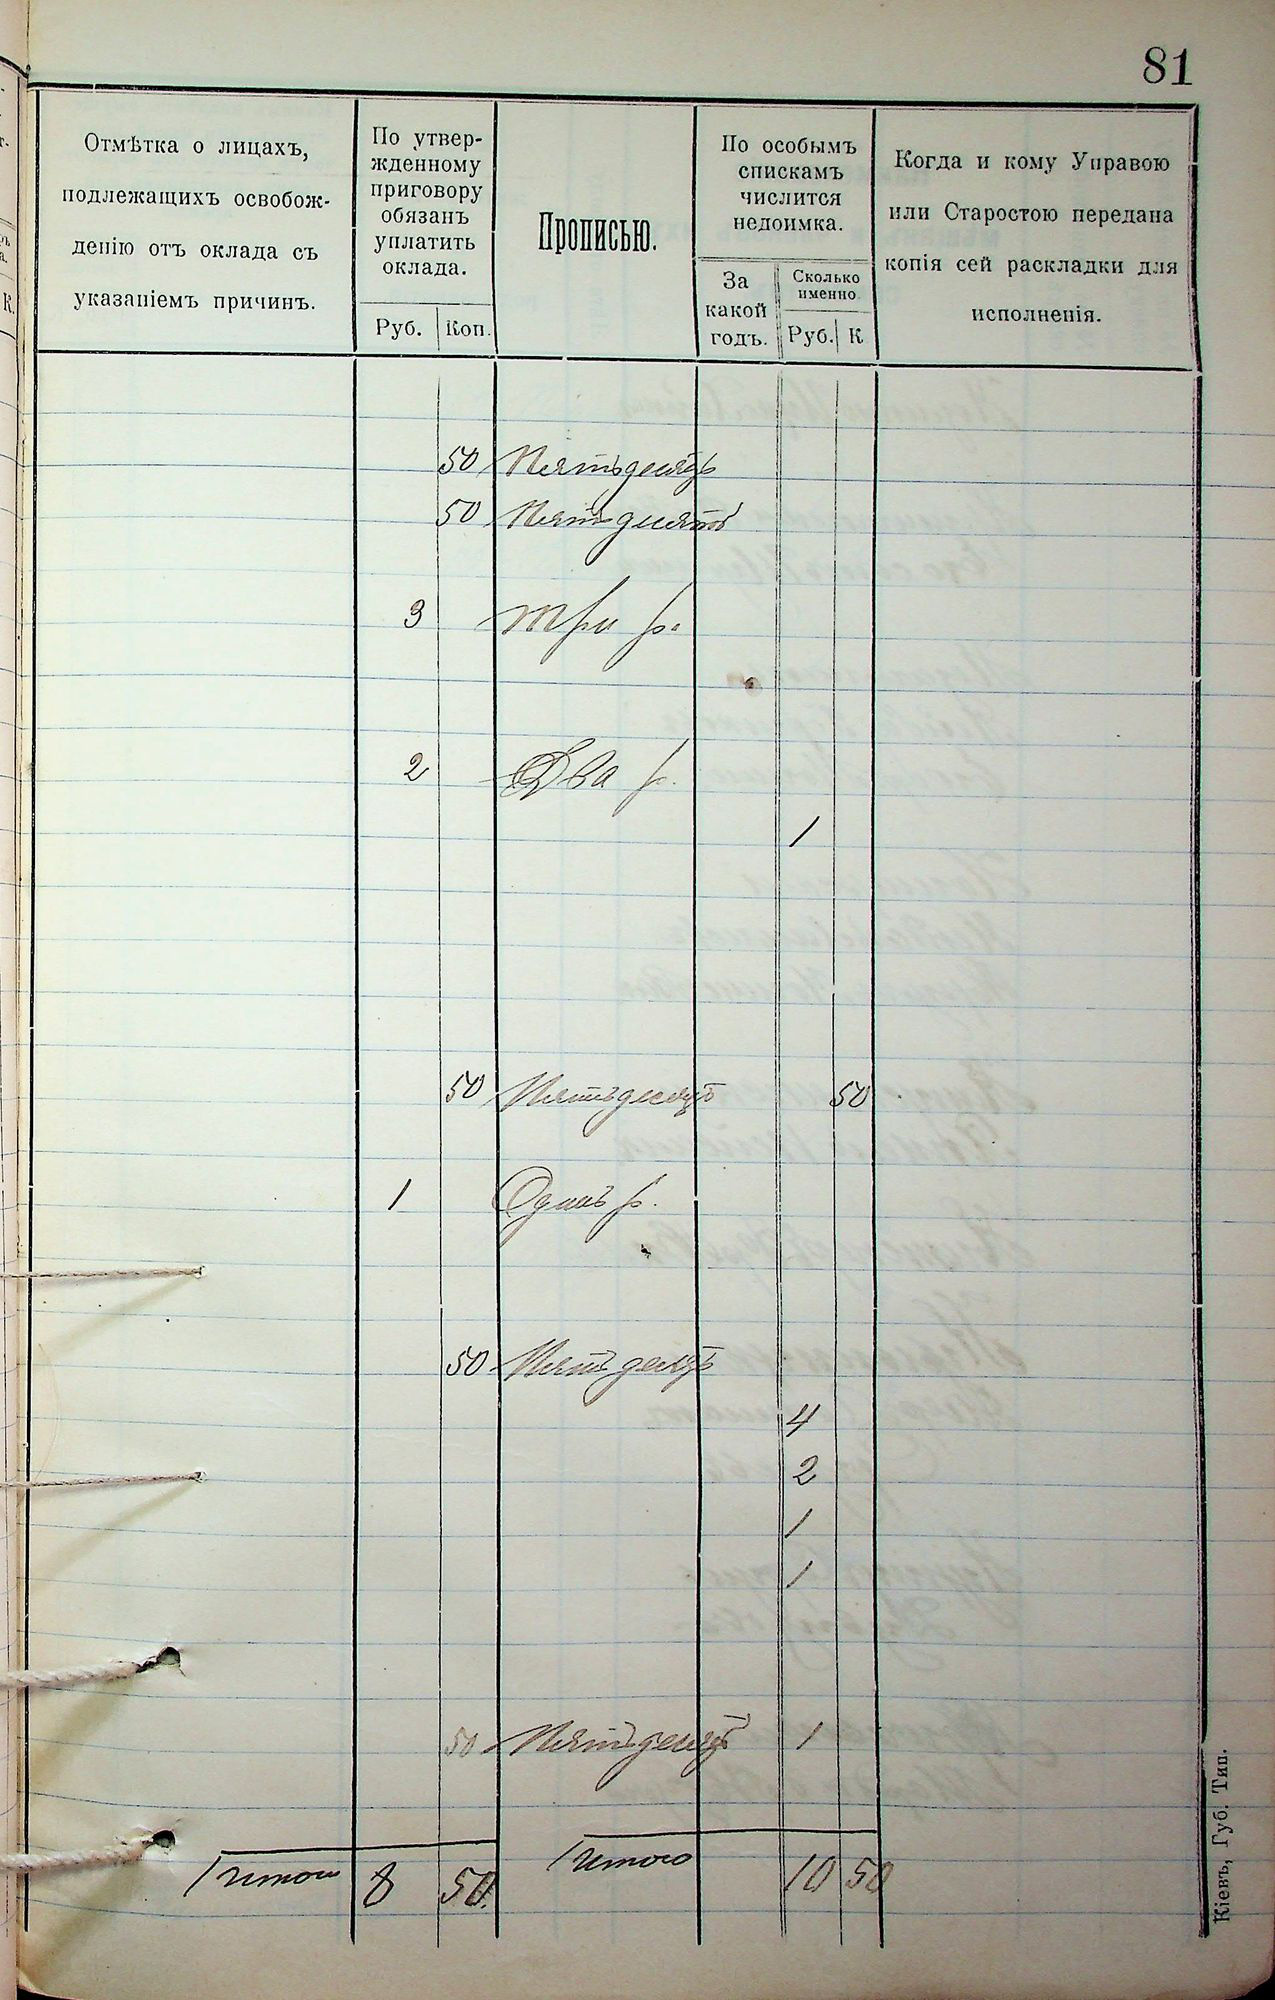 81
Отмѣтка о лицахъ,
подлежащихъ освобож-
денію отъ оклада съ
указаніемъ причинъ.
По утвер-
жденному
приговору
обязанъ
уплатить
оклада.
Руб. Коп.
Прописью.
По особымъ
спискамъ
числится
недоимка.
За
какой
годъ.
Сколько
именно
Руб. К
Когда и кому Управою
или Старостою передана
копія сей раскладки для
исполненія.
50 Пятьдесятъ
50 Пятьдесятъ
3 Три р.
2 Два р.
1
50 Пятьдесятъ 50
1 Одинъ р.
50 Пятьдесятъ
4
2
1
1
50 Пятьдесятъ 1
Итого 8 50. Итого 10 50
Кіевъ, Губ. Тип.